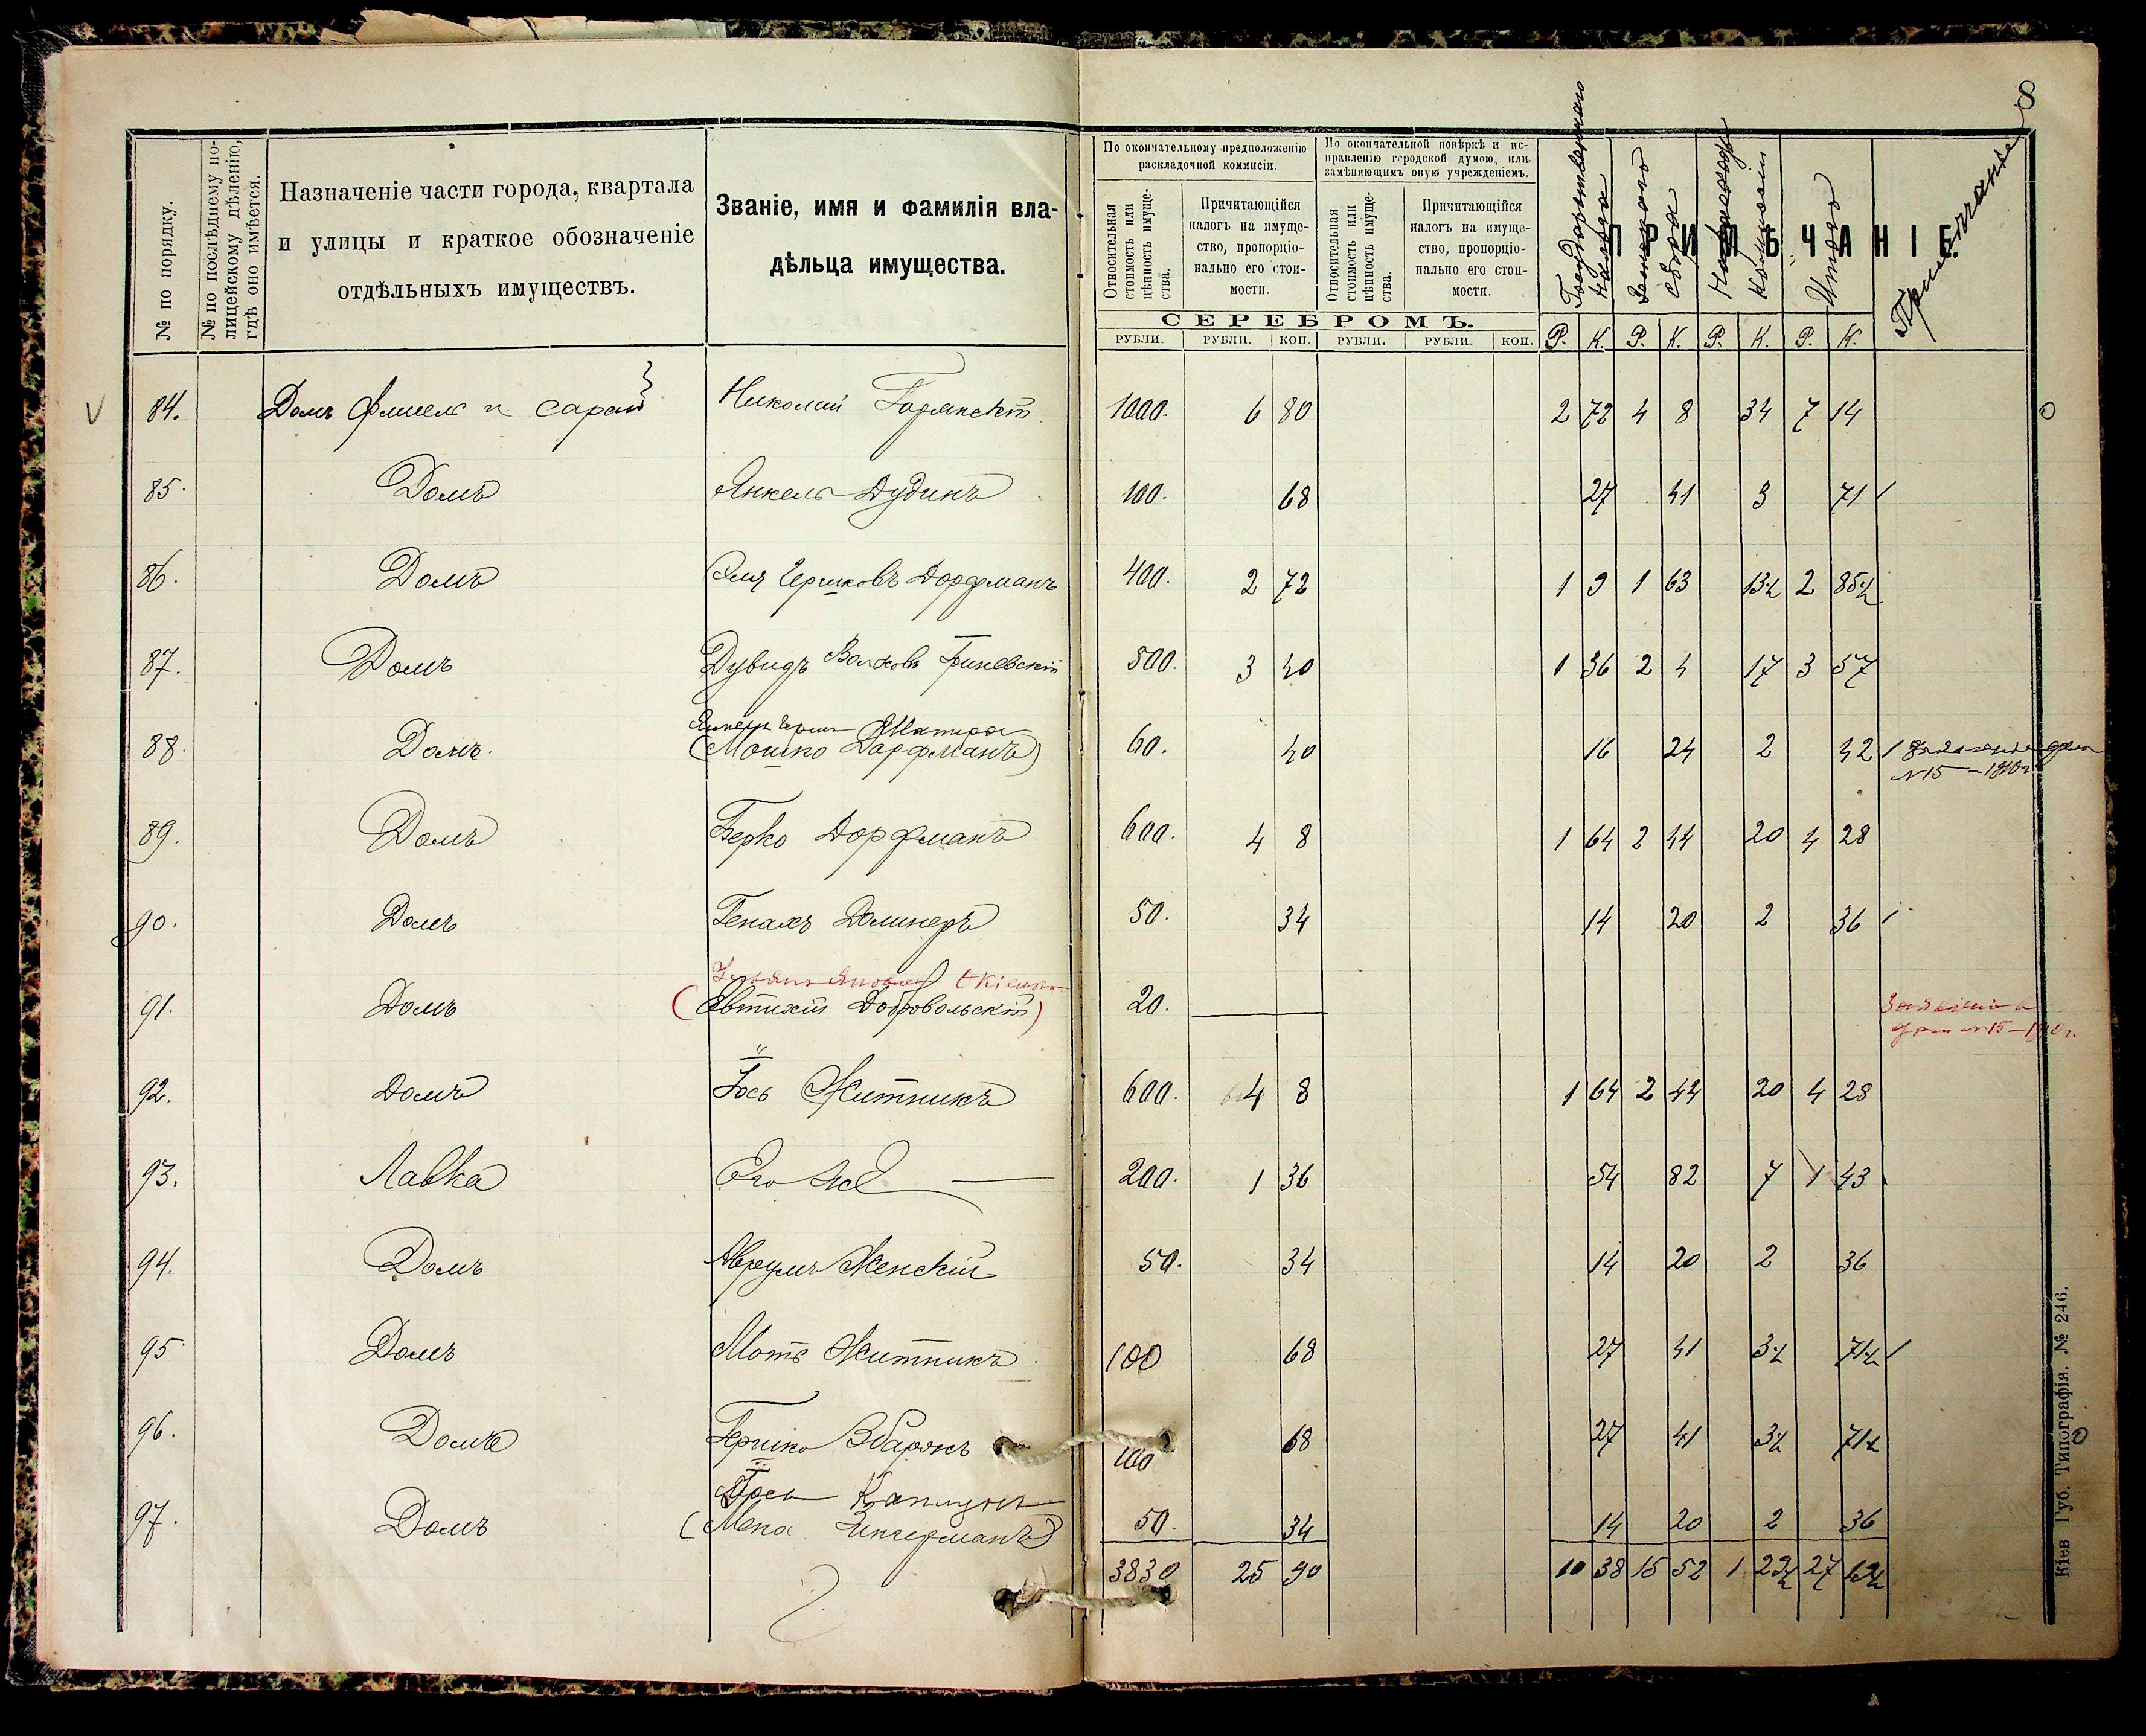 8
№ по порядку.
№ по послѣднему по-
лицейскому дѣленію,
гдѣ оно имѣется.
Назначеніе части города, квартала
и улицы и краткое обозначеніе
отдѣльныхъ имуществъ.
Званіе, имя и фамилія вла-
дѣльца имущества.
По окончательному предположенію
раскладочной комисіи.
По окончательной повѣркѣ и ис-
правленію городской думою, или
замѣняющимъ оную учрежденіемъ.
Относительная
стоимость или
цѣнность имуще-
ства.
Причитающійся
налогъ на имуще-
ство, пропорціо-
нально его стои-
мости.
Относительная
стоимость или
цѣнность имуще-
ства.
Причитающійся
налогъ на имуще-
ство, пропорціо-
нально его стои-
мости.
ПРИМѢЧАНІЕ.
Государственнаго
налога
Земскаго
сбора
Итого
Примѣчаніе
СЕРЕБРОМЪ.
РУБЛИ. РУБЛИ. КОП. РУБЛИ. РУБЛИ. КОП. Р. К. Р. К. Р. К. Р. К.
84. Домъ флигель и сарай Николай 1000. 6 80 2 72 4 8 34 7 14
85. Домъ Янкель Дудикъ 100. 68 27 41 3 71
86. Домъ Гершковъ Дорфманъ 400. 2 72 1 9 1 63 13½ 2 85½
87. Домъ Дувидъ Волховъ Гриневскій 500. 3 40 1 36 2 4 17 3 57
88. Домъ (Мошко Дорфманъ) 60. 40 16 24 2 42
№15 – 1910 г.
89. Домъ Берко Дорфманъ 600. 4 8 1 64 2 44 20 4 28
90. Домъ Генахъ Долинеръ 50. 34 14 20 2 36
91. Домъ (Евтихій Добровольскій) 20.
№15 – 1910 г.
92. Домъ Іось Житникъ 600. 4 8 1 64 2 44 20 4 28
93. Лавка Его же 200. 1 36 54 82 7 1 43
94. Домъ Аврумъ Женскій 50. 34 14 20 2 36
95 Домъ Моть Житникъ 100 68 27 41 3½ 71½
96. Домъ Гершко Збаржъ 100 68 27 41 3½ 71½
Іось Каплунъ
97. Домъ (Мена Зингерманъ) 50. 34 14 20 2 36
3830 25 90 10 38 15 52 1 23½ 27 13½
Кіев Губ. Типографія. № 246.